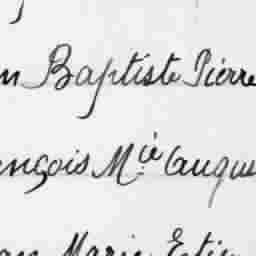 n Baptiste Pierre
nçois M.ie Augus
an Marie Etie